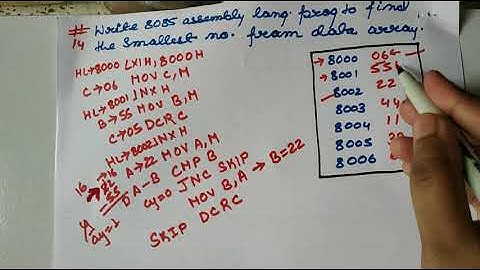 # Write 8085 assembly lang. prog to find
14 the smallest no. from data array.
HL→8000 LXI H, 8000H
C→06 MOV C, M
HL→8001 INX H
B→55 MOV B, M
C→05 DCR C
HL→8002 INX H
A→22 MOV A, M
A-B CMP B
cy=0 JNC SKIP
MOV B, A → B=22
SKIP DCR C
→ 8000 06
→ 8001 55
8002 22
8003 44
8004 11
8005
8006